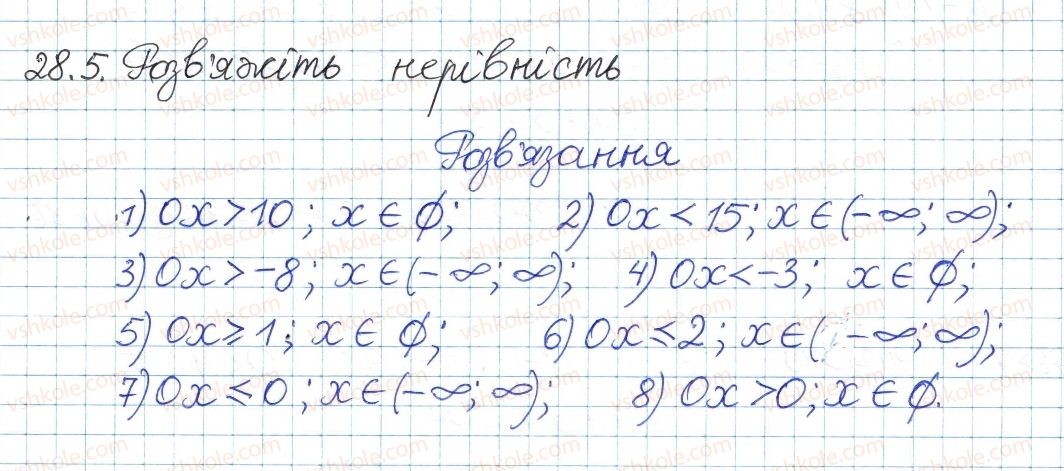 28.5. Розв'яжіть нерівність
Розв'язання
1) 0x > 10; x ∈ ∅; 2) 0x < 15; x ∈ (-∞; ∞);
3) 0x > -8; x ∈ (-∞; ∞); 4) 0x < -3; x ∈ ∅;
5) 0x ≥ 1; x ∈ ∅; 6) 0x ≤ 2; x ∈ (-∞; ∞);
7) 0x ≤ 0; x ∈ (-∞; ∞); 8) 0x > 0; x ∈ ∅.
vshkole.com